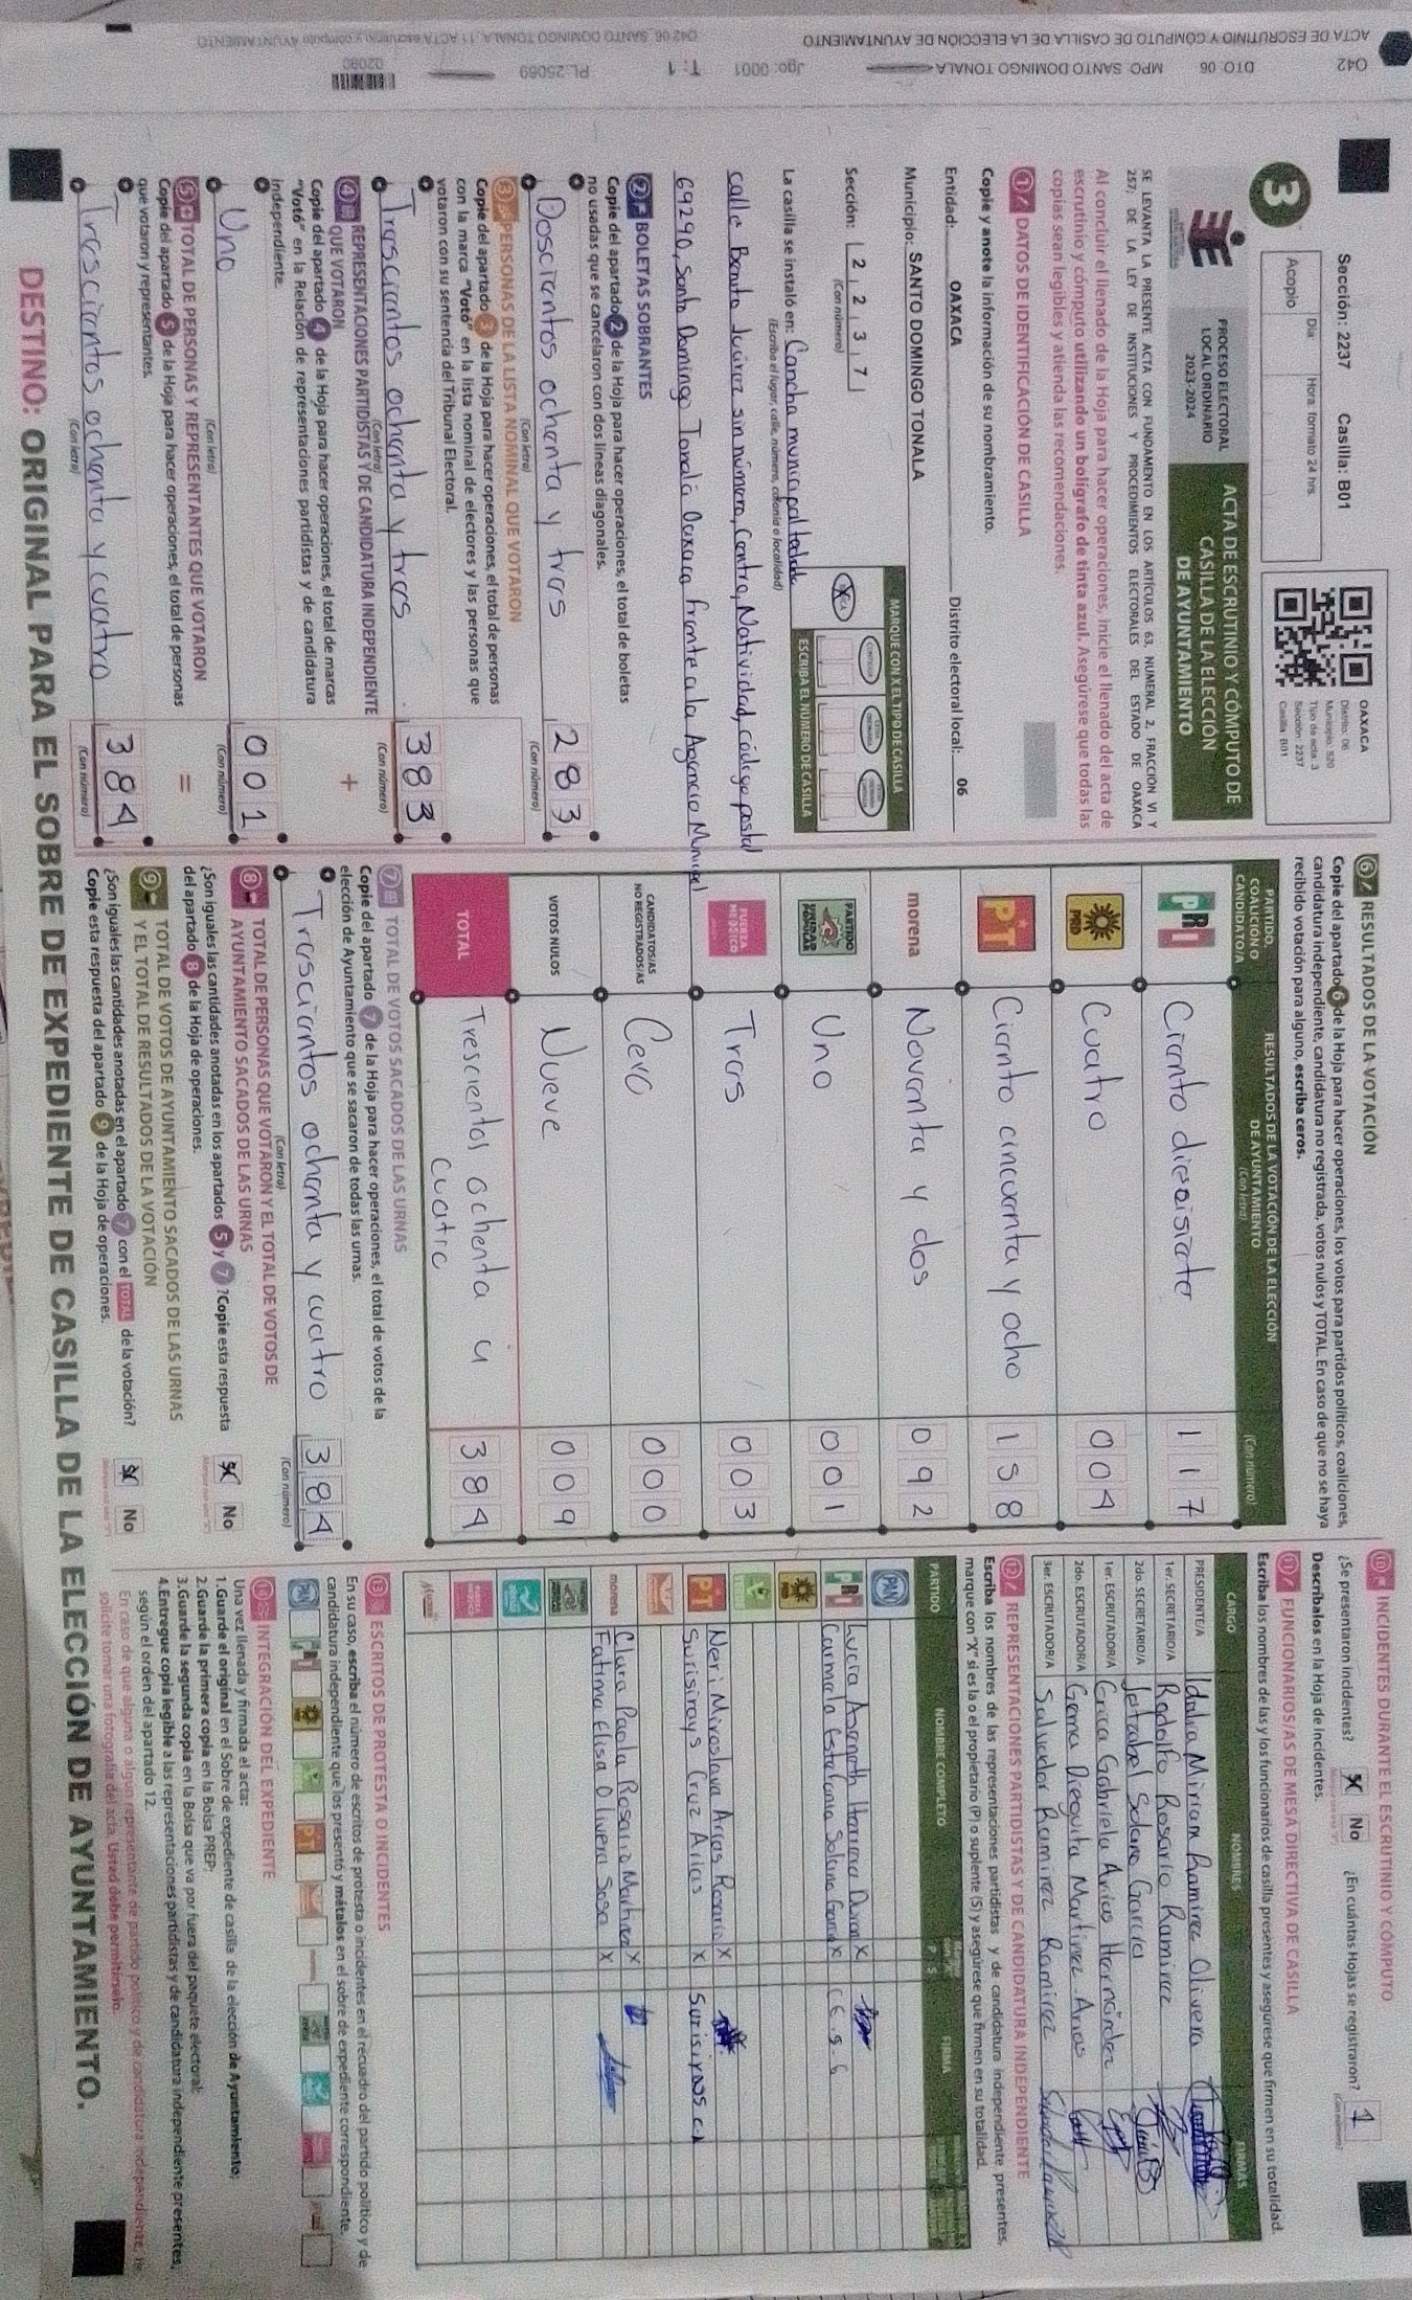 Sección: 2237 Casilla: B01
Día Hora formato 24 hrs.
Acopio
3
OAXACA
Distrito: 06
Municipio: 520
Tipo de acta: 3
Sección: 2237
Casilla: B01
PROCESO ELECTORAL
LOCAL ORDINARIO
2023-2024
ACTA DE ESCRUTINIO Y CÓMPUTO DE
CASILLA DE LA ELECCIÓN
DE AYUNTAMIENTO
SE LEVANTA LA PRESENTE ACTA CON FUNDAMENTO EN LOS ARTÍCULOS 63, NUMERAL 2, FRACCIÓN VI Y
257; DE LA LEY DE INSTITUCIONES Y PROCEDIMIENTOS ELECTORALES DEL ESTADO DE OAXACA
Al concluir el llenado de la Hoja para hacer operaciones, inicie el llenado del acta de
escrutinio y cómputo utilizando un bolígrafo de tinta azul. Asegúrese que todas las
copias sean legibles y atienda las recomendaciones.
1 DATOS DE IDENTIFICACIÓN DE CASILLA
Copie y anote la información de su nombramiento.
Entidad: OAXACA Distrito electoral local: 06
Municipio: SANTO DOMINGO TONALA
Sección: 2 2 3 7
(Con número)
MARQUE CON X EL TIPO DE CASILLA
ESCRIBA EL NÚMERO DE CASILLA
La casilla se instaló en: Cancha municipal techada
(Escriba el lugar, calle, número, colonia o localidad)
calle Benito Juárez sin número, Centro, Natividad, código postal
69290, Santo Domingo Tonalá Oaxaca frente a la Agencia Municipal
2 BOLETAS SOBRANTES
Copie del apartado 2 de la Hoja para hacer operaciones, el total de boletas
no usadas que se cancelaron con dos líneas diagonales.
Doscientos ochenta y tres 283
(Con letra) (Con número)
3 PERSONAS DE LA LISTA NOMINAL QUE VOTARON
Copie del apartado 3 de la Hoja para hacer operaciones, el total de personas
con la marca "Votó" en la lista nominal de electores y las personas que
votaron con su sentencia del Tribunal Electoral.
Trescientos ochenta y tres 383
(Con letra) (Con número)
4 REPRESENTACIONES PARTIDISTAS Y DE CANDIDATURA INDEPENDIENTE
QUE VOTARON
+
Copie del apartado 4 de la Hoja para hacer operaciones, el total de marcas
"Votó" en la Relación de representaciones partidistas y de candidatura
independiente.
Uno 001
(Con letra) (Con número)
5 TOTAL DE PERSONAS Y REPRESENTANTES QUE VOTARON
=
Copie del apartado 5 de la Hoja para hacer operaciones, el total de personas
que votaron y representantes.
Trescientos ochenta y cuatro 384
(Con letra) (Con número)
6 RESULTADOS DE LA VOTACIÓN
Copie del apartado 6 de la Hoja para hacer operaciones, los votos para partidos políticos, coaliciones,
candidatura independiente, candidatura no registrada, votos nulos y TOTAL. En caso de que no se haya
recibido votación para alguno, escriba ceros.
PARTIDO,
COALICIÓN O
CANDIDATO/A
RESULTADOS DE LA VOTACIÓN DE LA ELECCIÓN
DE AYUNTAMIENTO
(Con letra) (Con número)
PRI Ciento diecisiete 117
PRD Cuatro 004
PT Ciento cincuenta y ocho 158
morena Noventa y dos 092
PARTIDO UNIDAD POPULAR Uno 001
FUERZA MÉXICO Tres 003
CANDIDATOS/AS
NO REGISTRADOS/AS Cero 000
VOTOS NULOS Nueve 009
TOTAL Trescientos ochenta y
cuatro 384
7 TOTAL DE VOTOS SACADOS DE LAS URNAS
Copie del apartado 7 de la Hoja para hacer operaciones, el total de votos de la
elección de Ayuntamiento que se sacaron de todas las urnas.
Trescientos ochenta y cuatro 384
(Con letra) (Con número)
8 TOTAL DE PERSONAS QUE VOTARON Y EL TOTAL DE VOTOS DE
AYUNTAMIENTO SACADOS DE LAS URNAS
¿Son iguales las cantidades anotadas en los apartados 5 y 7 ? Copie esta respuesta
del apartado 8 de la Hoja de operaciones.
Sí No
9 TOTAL DE VOTOS DE AYUNTAMIENTO SACADOS DE LAS URNAS
Y EL TOTAL DE RESULTADOS DE LA VOTACIÓN
¿Son iguales las cantidades anotadas en el apartado 7 con el TOTAL de la votación?
Copie esta respuesta del apartado 9 de la Hoja de operaciones.
Sí No
10 INCIDENTES DURANTE EL ESCRUTINIO Y CÓMPUTO
¿Se presentaron incidentes? Sí No ¿En cuántas Hojas se registraron? 1
Descríbalos en la Hoja de incidentes.
11 FUNCIONARIOS/AS DE MESA DIRECTIVA DE CASILLA
Escriba los nombres de las y los funcionarios de casilla presentes y asegúrese que firmen en su totalidad.
CARGO NOMBRES FIRMAS
PRESIDENTE/A Idalia Miriam Ramirez Olivera
1er. SECRETARIO/A Rodolfo Rosario Ramirez
2do. SECRETARIO/A Jetzabel Solano Garcia
1er. ESCRUTADOR/A Erica Gabriela Arias Hernández
2do. ESCRUTADOR/A Gema Dieguita Martinez Arias
3er. ESCRUTADOR/A Salvador Ramirez Ramirez
12 REPRESENTACIONES PARTIDISTAS Y DE CANDIDATURA INDEPENDIENTE
Escriba los nombres de las representaciones partidistas y de candidatura independiente presentes,
marque con "X" si es la o el propietario (P) o suplente (S) y asegúrese que firmen en su totalidad.
PARTIDO NOMBRE COMPLETO P S FIRMA
PAN
PRI Lucia Asenath Herrera Duran X
Carmela Estefania Solano Garcia X C.E.S.G
PRD
PT Neri Miroslava Arias Rosario X
Surisirays Cruz Arias X Surisirays CA
morena Clara Paola Rosario X
Fatima Elisa Olivera Sosa X
13 ESCRITOS DE PROTESTA O INCIDENTES
En su caso, escriba el número de escritos de protesta o incidentes en el recuadro del partido político y de
candidatura independiente que los presentó y métalos en el sobre de expediente correspondiente.
INTEGRACIÓN DEL EXPEDIENTE
Una vez llenada y firmada el acta:
1. Guarde el original en el Sobre de expediente de casilla de la elección de Ayuntamiento;
2. Guarde la primera copia en la Bolsa PREP;
3. Guarde la segunda copia en la Bolsa que va por fuera del paquete electoral;
4. Entregue copia legible a las representaciones partidistas y de candidatura independiente presentes,
según el orden del apartado 12.
En caso de que alguna o algún representante de partido político y de candidatura independiente, le
solicite tomar una fotografía del acta. Usted debe permitírselo.
DESTINO: ORIGINAL PARA EL SOBRE DE EXPEDIENTE DE CASILLA DE LA ELECCIÓN DE AYUNTAMIENTO.
O42 DTO: 06 MPO: SANTO DOMINGO TONALA Jgo: 0001 T: 1 PL: 25069 02080
ACTA DE ESCRUTINIO Y CÓMPUTO DE CASILLA DE LA ELECCIÓN DE AYUNTAMIENTO